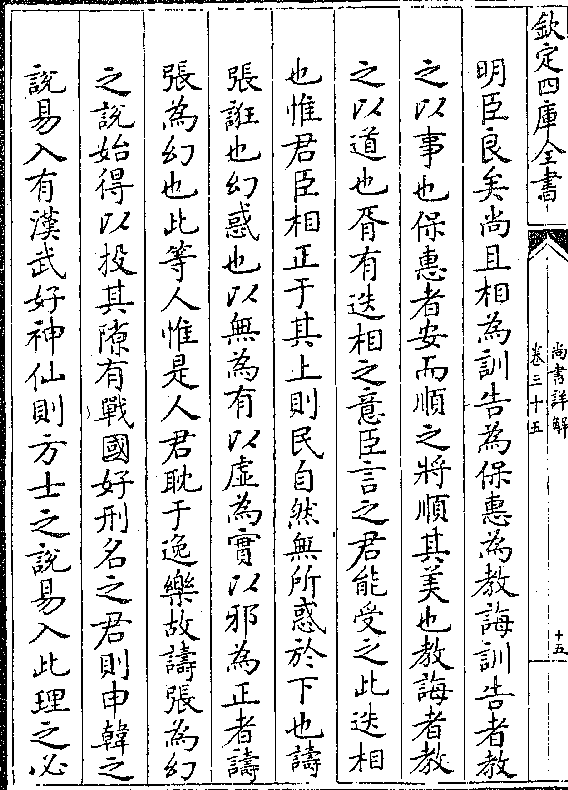 欽定四庫全書
尚書詳解
卷三十五
十五
明臣良矣尚且相為訓告為保惠為教誨訓告者教
之以事也保惠者安而順之將順其美也教誨者教
之以道也胥有迭相之意臣言之君能受之此迭相
也惟君臣相正于其上則民自然無所惑於下也譸
張誑也幻惑也以無為有以虛為實以邪為正者譸
張為幻也此等人惟是人君耽于逸樂故譸張為幻
之說始得以投其隙有戰國好刑名之君則申韓之
說易入有漢武好神仙則方士之說易入此理之必